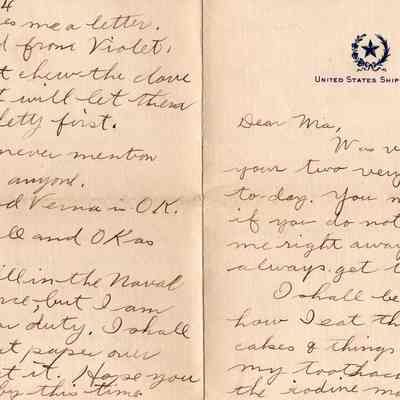 4
es me a letter.
d from Violet,
t chew the clove
t will let them
letty first.
never mention
anyone.
d Verna is OK.
ll and OK as
ill in the Naval
nce, but I am
r duty. I shall
t paper over
t it. Hope you
by this time.
UNITED STATES SHIP
Dear Ma,
Was v
your two very
to-day. You m
if you do not
me right away
always get t
I shall be
how I eat th
cakes & things
my toothac
the iodine ma